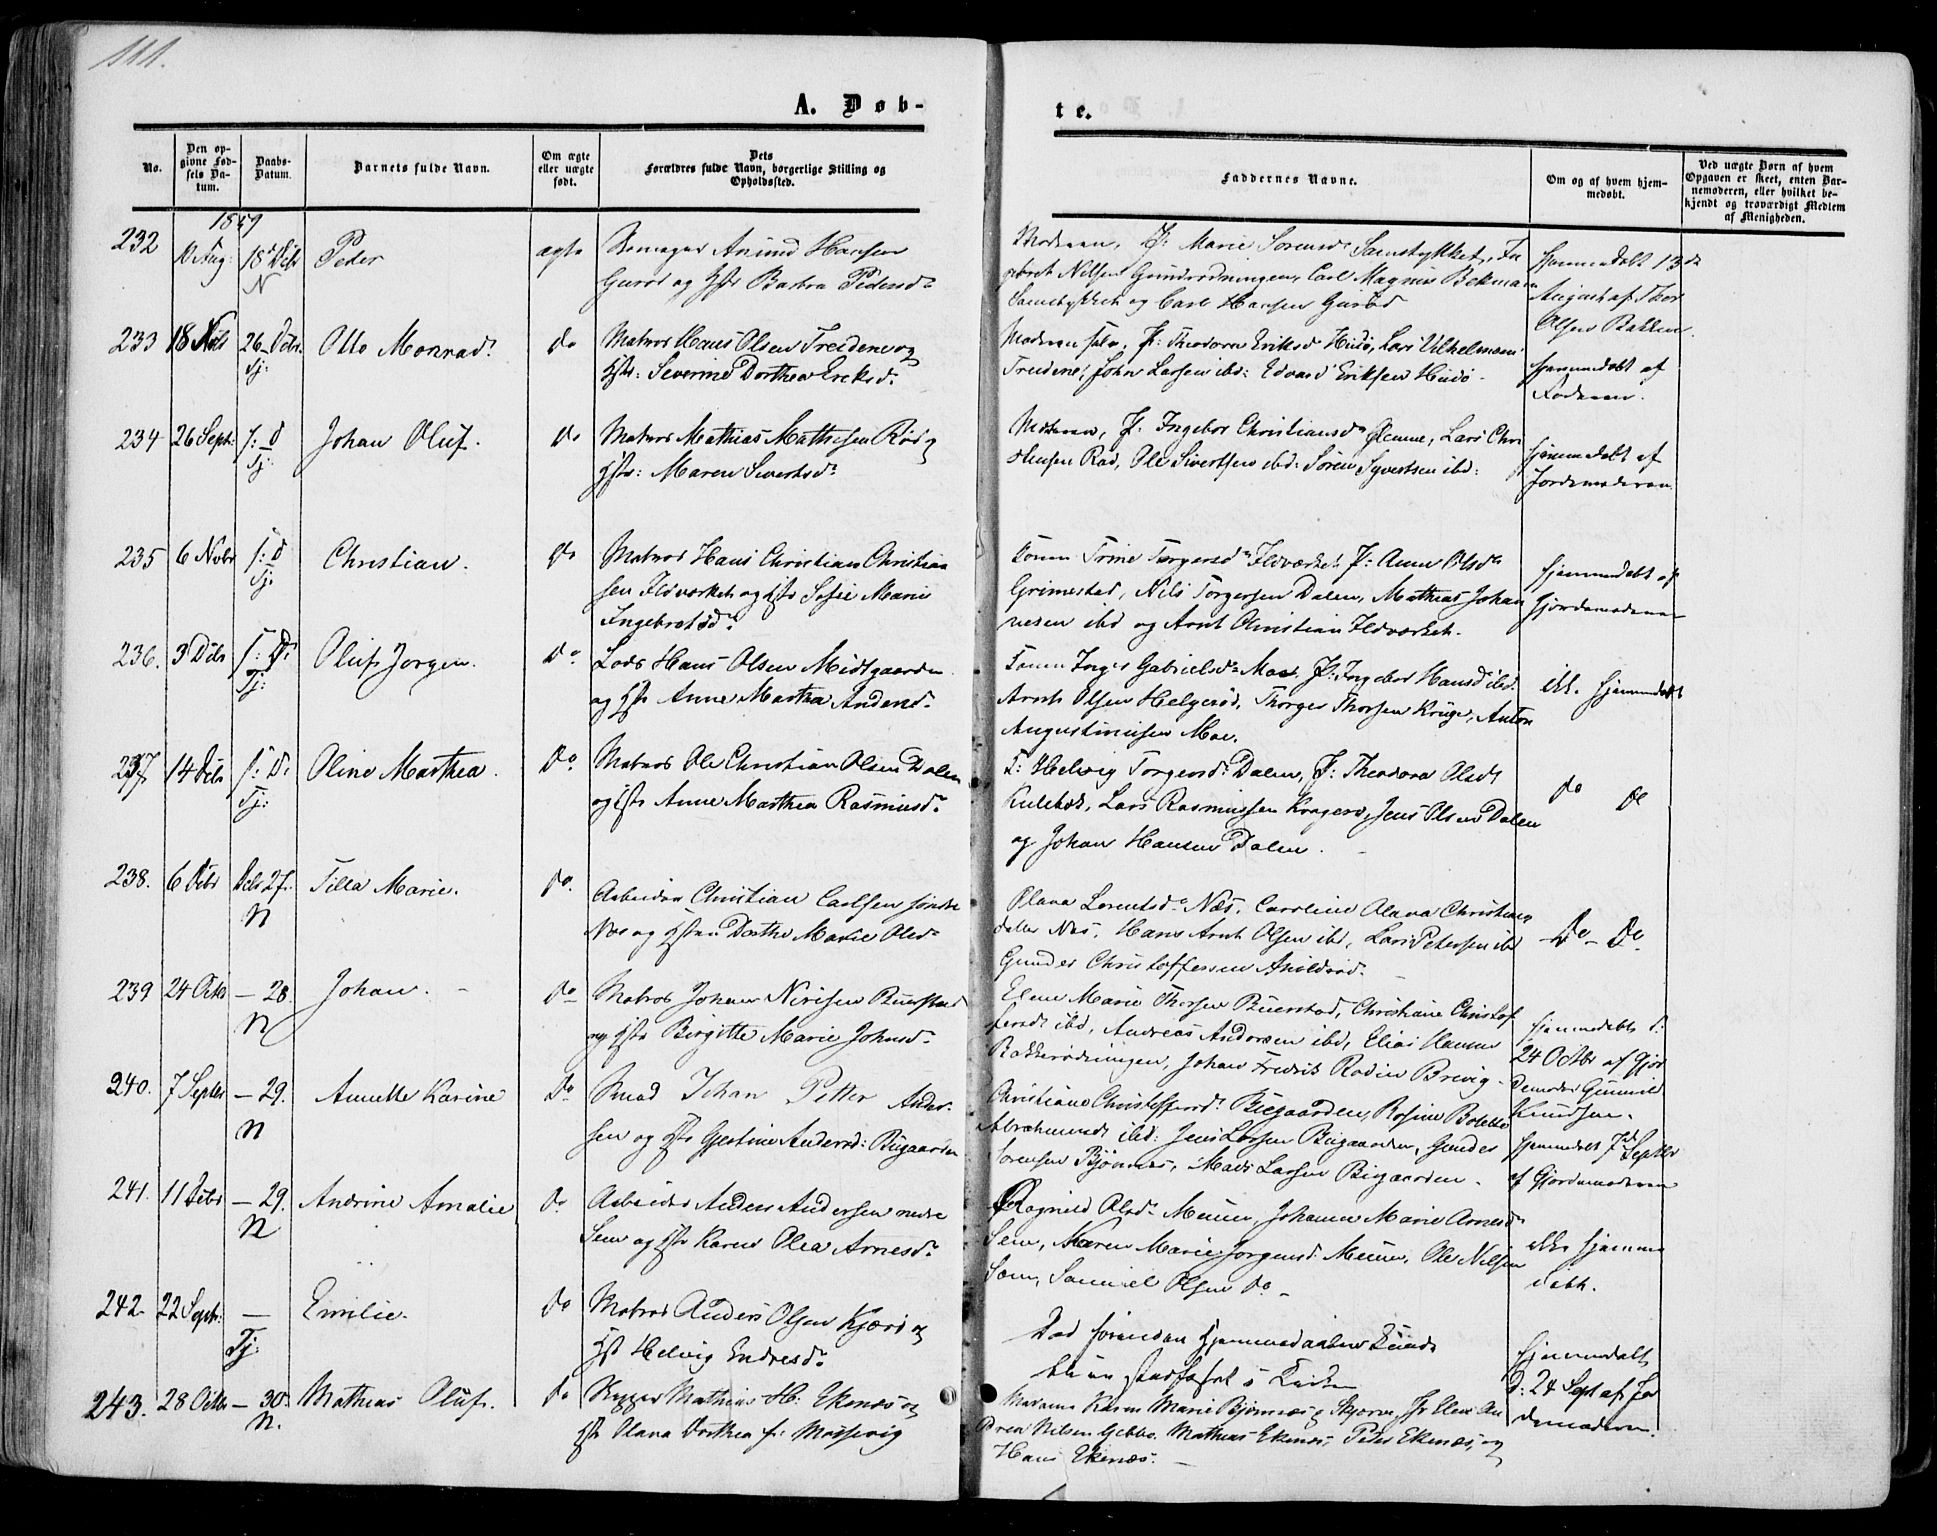 111.
A. Døb-
te.
No.
Den op-
givne Fød-
sels Da-
tum.
Daabs-
Datum.
Barnets fulde Navn.
Om ægte
eller uægte
født.
Dets
Forældres fulde Navn, borgerlige Stilling og
Opholdssted.
Faddernes Navne.
Om og af hvem hjem-
medøbt.
Ved uægte Børn af hvem
Opgaven er skeet, enten Bar-
nemoderen, eller hvilket be-
kjendt og troværdigt Medlem
af Menigheden.
1859
232
Aug:
18 Decbr
N
Peder
ægte
Anund Hansen
og Hst Barbra Pedersd:
Moderen, F: Marie Sorensd:
Nilsen Carl Magnus Bekman
og Carl Hansen
Hjemmedøbt 13de
August af Thor
Olsen Bakken
233
18 Nvbr
26 - Decbr.
Tj:
Otto Monrad.
do
Matros Hans Olsen Tredene og
Hst: Severine Dorthea Ericksd:
Moderen selv, F: Theodora Eriksd Huiø, Lars Vilhelmsen
John Larsen ibd: Edvard Eriksen Huiø.
hjemmedøbt af
Faderen.
234
26 Sept:
f: d
Tj:
Johan Oluf.
do
Matros Mathias Mathisen Rød og
Hst: Maren Sivertsd:
Moderen, F: Ingebor Christiansd: Lars Chri
stensen Rød, Ole Sivertsen ibd: Søren Syvertsen ibd:
hjemmedøbt af
Jordemoderen.
235
6 Nvbr
f: d
Tj:
Christian.
do
Matros Hans Christian Christian
sen Ildværket og Hst Sofie Marie
Ingebretsd:
Konen Trine Torgersd: Ildværket, P: Anne Olsd:
Grimestad, Nils Torgersen Dalen, Mathias Johan
nesen ibd og Arnt Christian Ildværket.
hjemmedøbt af
Gjordemoderen
236.
3 Dcbr
f: D:
Tj:
Oluf Jorgen.
do
Lods Hans Olsen Midtgaarden
og Hst Anne Marthea Andersd:
Konen Inger Gabrielsd: Moe, P: Ingebor Hansd ibd.
Arnt Olsen Helgerød, Thorger Thorsen Kruge, Anton
Augustinusen Moe.
ikk. hjemmedøbt
237
14 Dcbr
f: D:
Tj:
Oline Marthea.
Do
Matros Ole Christian Olsen Dalen
og Hst Anne Marthea Rasmusd:
K: Helvig Torgersd: Dalen, P: Theodora Olsd:
Lars Rasmussen Kragerø, Jens Olsen Dalen
og Johan Hansen Dalen.
do do
238.
6 Dcbr
Dcbr 27.
N
Tilla Marie.
do.
Arbeider Christian Carlsen søndre
Nes og Hstru Dorthe Marie Olsd:
Olava Lorentsd: Næs, Caroline Olava Christians
datter Nes, Hans Arnt Olsen ibd, Lars Petersen ibd
Gunder Christoffersen
Do - Do
239
24 Octb
- 28.
N
Johan.
do
Matros Johan Nirisen Buerstad
og Hst Birgitte Marie Johnsd:
Elen Marie Thorsen Buerstad, Christiane Christof
fersd: ibd, Andreas Andersen ibd, Elias Hansen
Bakkerødningen, Johan Fredrik Rodin Brevig -
hjemmedøbt d:
24 Octbr af Gjor
demoder Gunnild
Knudsen.
240.
7 Septbr
- 29.
N
Annette Karine
do
Smed Johan Petter Ander-
sen og Hst Gjestine Andersd: Biugaarden
Christiane Christoffersd: Biegaarden, Rosine Bolette
Abrahamsd: ibd: Jens Larsen Biugaarden, Gunder
Sorensen Bjønnes, Mads Larsen Biegaarden.
hjemmedøbt 7de Septbr
af Gjordemoderen
241.
11 Dcbr
- 29.
N
Andrine Amalie
do
Arbeider Anders Andersen nedre
Sem og Hst Karen Olea Arnesd:
Ragnild Olsd: Meum, Johanne Marie Arnesd:
Sem, Karen Marie Jorgensd: Meum, Ole Nilsen
Sem, Samuel Olsen do -
ikke hjemme
døbt.
242.
22 Septr:
-
Tj:
Emilie.
do
Matros Anders Olsen Kjøro og
Hst Helvig Endresd:
Død forinden Hjemmedaaben kunde
blive stadfæstet i Kirken
hjemmedøbt
d: 24 Sept af Jor
demoderen.
243.
28 Octbr
- 30.
N.
Mathias Oluf.
do
Skipper Mathias H: Ekenæs og
Hst Olava Dorthea f: Mossevig
Madame Karen Marie Bjønnes, Elen An
drea Nilsen Gebbo. Mathias Ekenæs, Peder Ekenæs, og
Hans Ekenæs. -